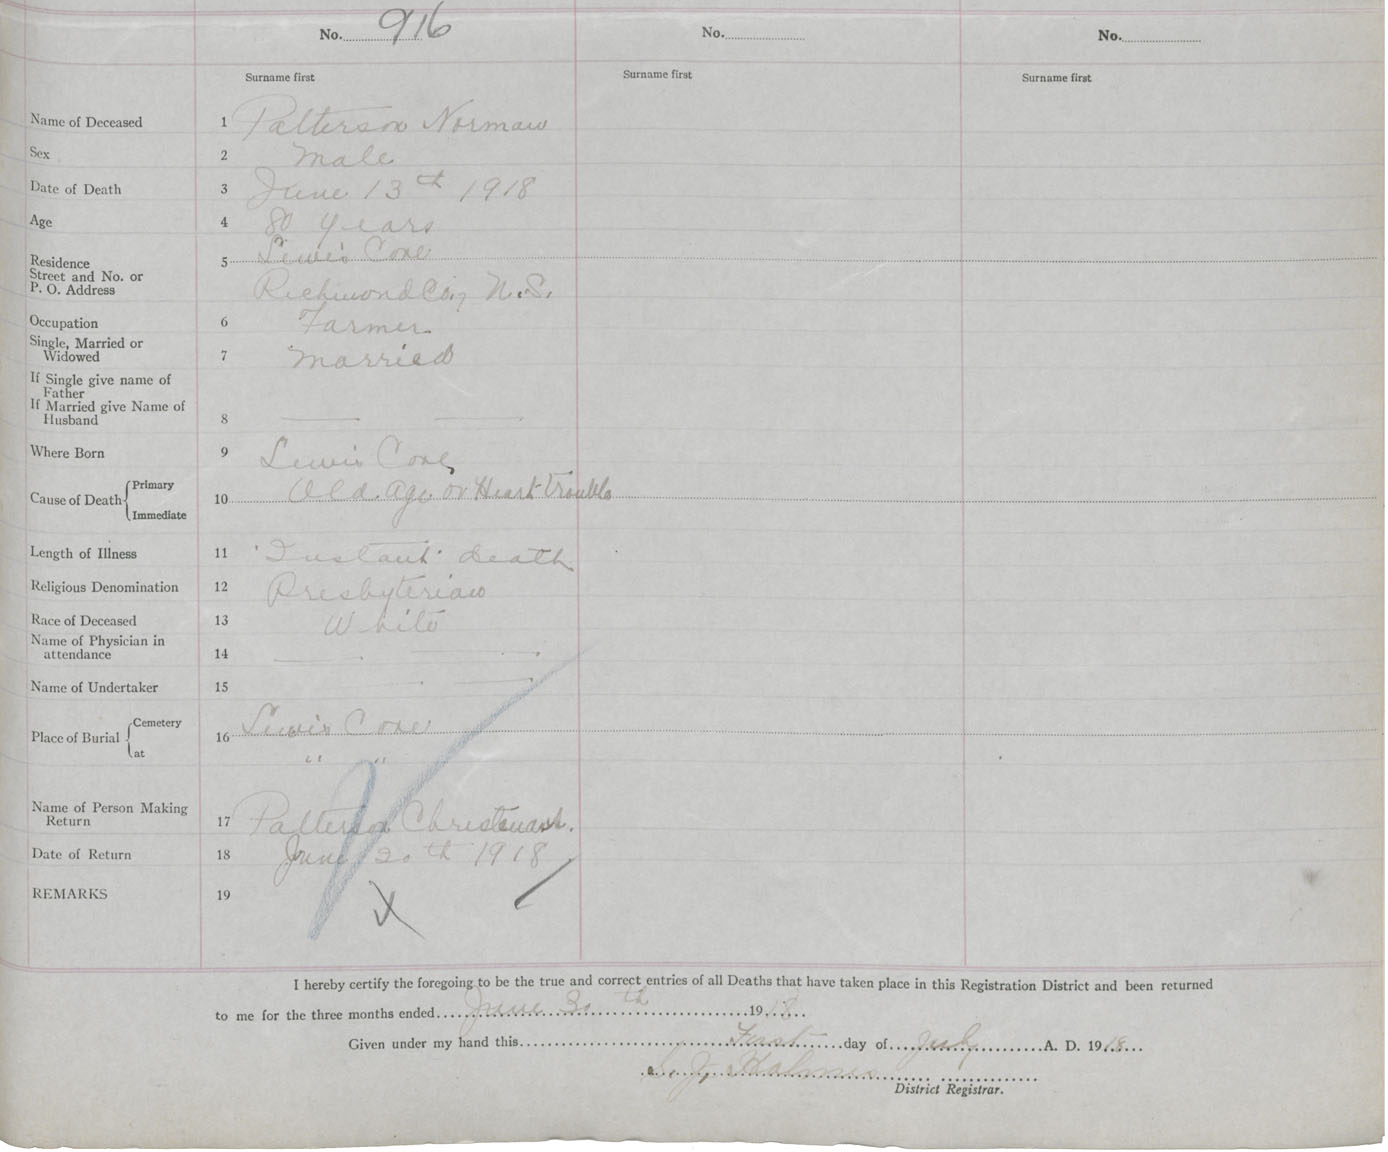 No. 916 No. No.
Surname first Surname first Surname first
Name of Deceased 1 Patterson Norman
Sex 2 Male
Date of Death 3 June 13th 1918
Age 4 80 years
Residence 5 Lewis Cove
Street and No. or
P. O. Address Richmond Co., N.S.
Occupation 6 Farmer
Single, Married or
Widowed 7 Married
If Single give name of
Father
If Married give Name of
Husband 8
Where Born 9 Lewis Cove
Cause of Death { Primary
10 Old age or Heart trouble
Immediate
Length of Illness 11 "Instant" death
Religious Denomination 12 Presbyterian
Race of Deceased 13 White
Name of Physician in
attendance 14
Name of Undertaker 15
Place of Burial { Cemetery
16 Lewis Cove
at " "
Name of Person Making
Return 17 Patterson
Date of Return 18 June 20th 1918
REMARKS 19
I hereby certify the foregoing to be the true and correct entries of all Deaths that have taken place in this Registration District and been returned
to me for the three months ended June 30th 1918
Given under my hand this First day of July A. D. 1918
Holmes
District Registrar.